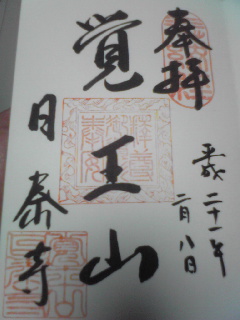 奉拝
平成二十一年
二月八日
覚王山
日泰寺